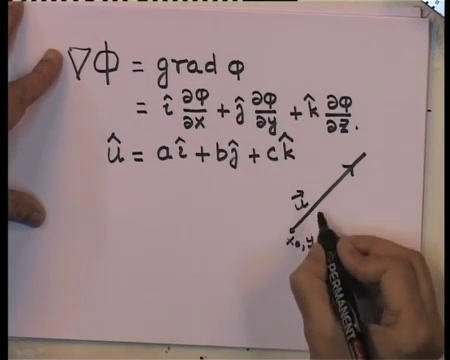 ∇Φ = grad φ
= î ∂φ/∂x + ĵ ∂φ/∂y + k̂ ∂φ/∂z.
û = aî + bĵ + ck̂
u⃗
x₀, y
PERMANENT